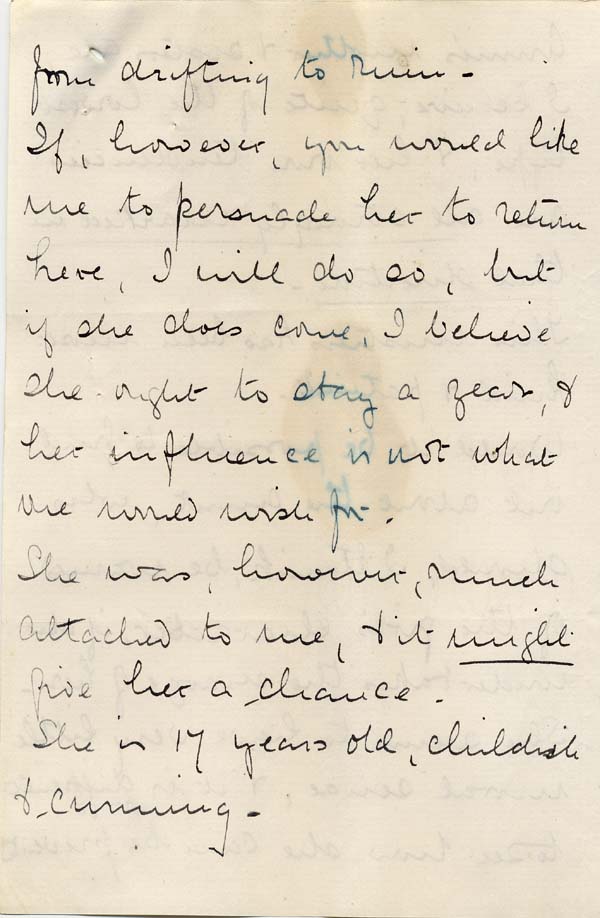 from drifting to ruin -
If, however, you would like
me to persuade her to return
here, I will do so, but
if she does come, I believe
she ought to stay a year, &
her influence is not what
we would wish for.
She was, however, much
attached to me, & it might
give her a chance.
She is 17 years old, childish
& cunning -